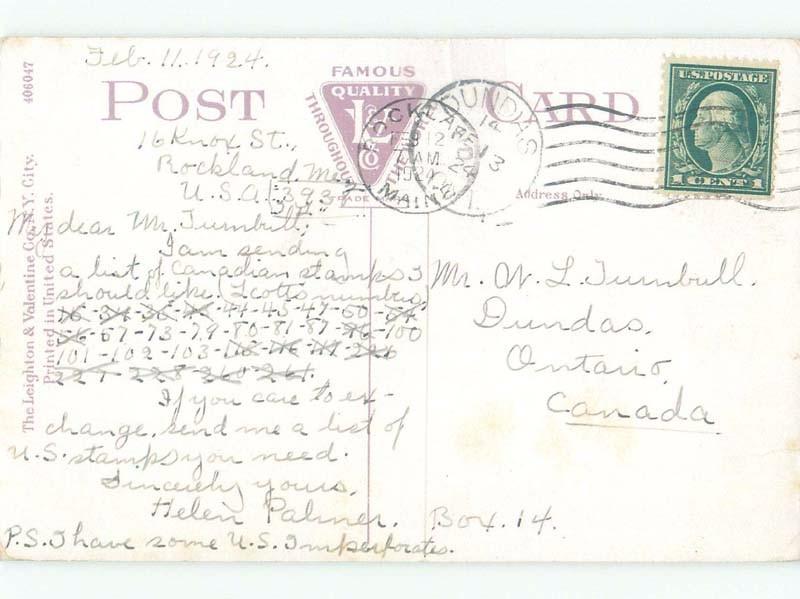 Feb. 11, 1924.
POST CARD
FAMOUS
QUALITY
THROUGHOUT THE WORLD
L&V
Co
TRADE
406047
The Leighton & Valentine Co., N.Y. City.
Printed in United States.
U.S. POSTAGE
1 CENT 1
ROCKLAND
FEB 12
AM
1924
MAINE
DUNDAS
14
Address Only
16 Knox St.,
Rockland, Me.,
U.S.A.
My dear Mr. Turnbull,
I am sending
a list of Canadian stamps I
should like. (Scotts numbers)
44-45-47-50-
67-73-79-80-81-87-96-100
101-102-103-
227-228-260-261.
If you care to ex-
change, send me a list of
U.S. stamps you need.
Sincerely yours,
Helen Palmer.
P.S. I have some U.S. Imperforates.
Mr. W. L. Turnbull.
Dundas,
Ontario,
Canada
Box. 14.